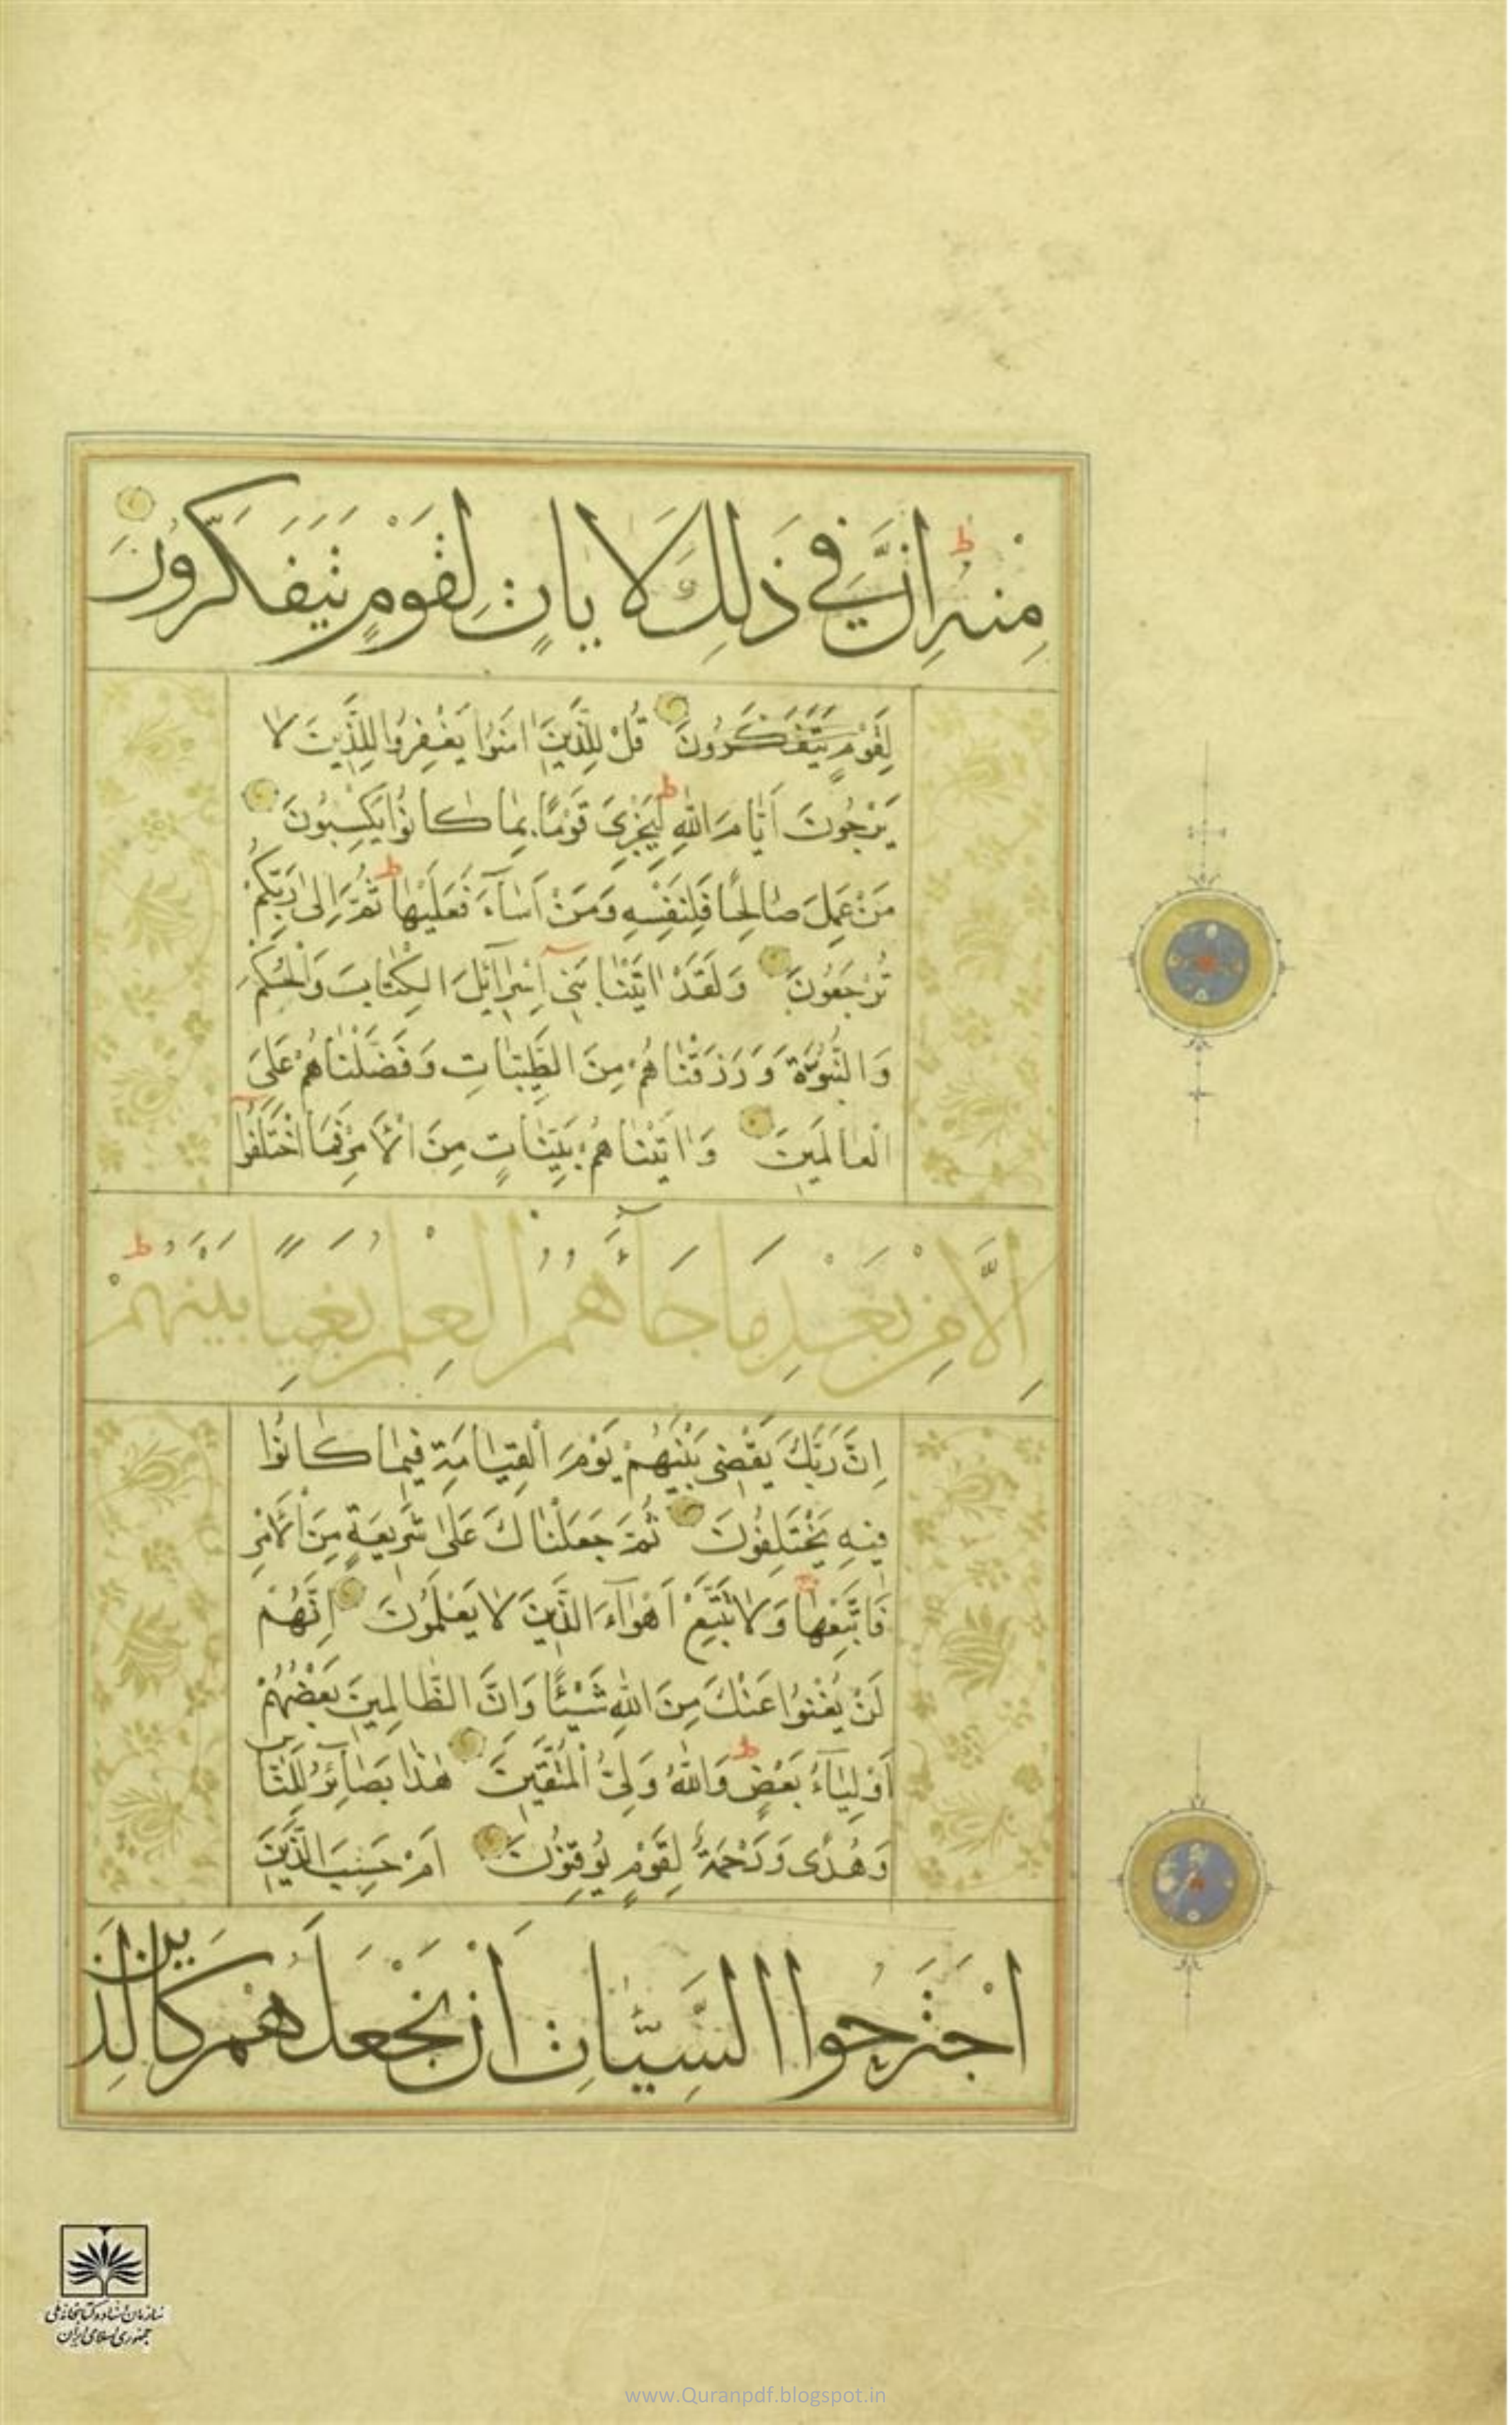 مِنْهُ ط اِنَّ فِي ذٰلِكَ لَاٰيَاتٍ لِقَوْمٍ يَتَفَكَّرُونَ
لِقَوْمٍ يَتَفَكَّرُونَ قُلْ لِلَّذِينَ اٰمَنُوا يَغْفِرُوا لِلَّذِينَ لَا
يَرْجُونَ اَيَّامَ اللّٰهِ ط لِيَجْزِىَ قَوْمًا بِمَا كَانُوا يَكْسِبُونَ
مَنْ عَمِلَ صَالِحًا فَلِنَفْسِهِ وَمَنْ اَسَاۤءَ فَعَلَيْهَا ط ثُمَّ اِلٰى رَبِّكُمْ
تُرْجَعُونَ وَلَقَدْ اٰتَيْنَا بَنِىۤ اِسْرَاۤئِلَ الْكِتَابَ وَالْحُكْمَ
وَالنُّبُوَّةَ وَرَزَقْنَاهُمْ مِنَ الطَّيِّبَاتِ وَفَضَّلْنَاهُمْ عَلَى
الْعَالَمِينَ وَاٰتَيْنَاهُمْ بَيِّنَاتٍ مِنَ الْاَمْرِ فَمَا اخْتَلَفُوۤا
اِلَّا مِنْ بَعْدِ مَا جَاۤءَهُمُ الْعِلْمُ بَغْيًا بَيْنَهُمْ ط
اِنَّ رَبَّكَ يَقْضِى بَيْنَهُمْ يَوْمَ الْقِيَامَةِ فِيمَا كَانُوا
فِيهِ يَخْتَلِفُونَ ثُمَّ جَعَلْنَاكَ عَلٰى شَرِيعَةٍ مِنَ الْاَمْرِ
فَاتَّبِعْهَا وَلَا تَتَّبِعْ اَهْوَاۤءَ الَّذِينَ لَا يَعْلَمُونَ اِنَّهُمْ
لَنْ يُغْنُوا عَنْكَ مِنَ اللّٰهِ شَيْئًا وَاِنَّ الظَّالِمِينَ بَعْضُهُمْ
اَوْلِيَاۤءُ بَعْضٍ ط وَاللّٰهُ وَلِىُّ الْمُتَّقِينَ هٰذَا بَصَاۤئِرُ لِلنَّاسِ
وَهُدًى وَرَحْمَةٌ لِقَوْمٍ يُوقِنُونَ اَمْ حَسِبَ الَّذِينَ
اجْتَرَحُوا السَّيِّئَاتِ اَنْ نَجْعَلَهُمْ كَالَّذِينَ
سازمان اسناد و کتابخانه ملی
جمهوری اسلامی ایران
www.Quranpdf.blogspot.in